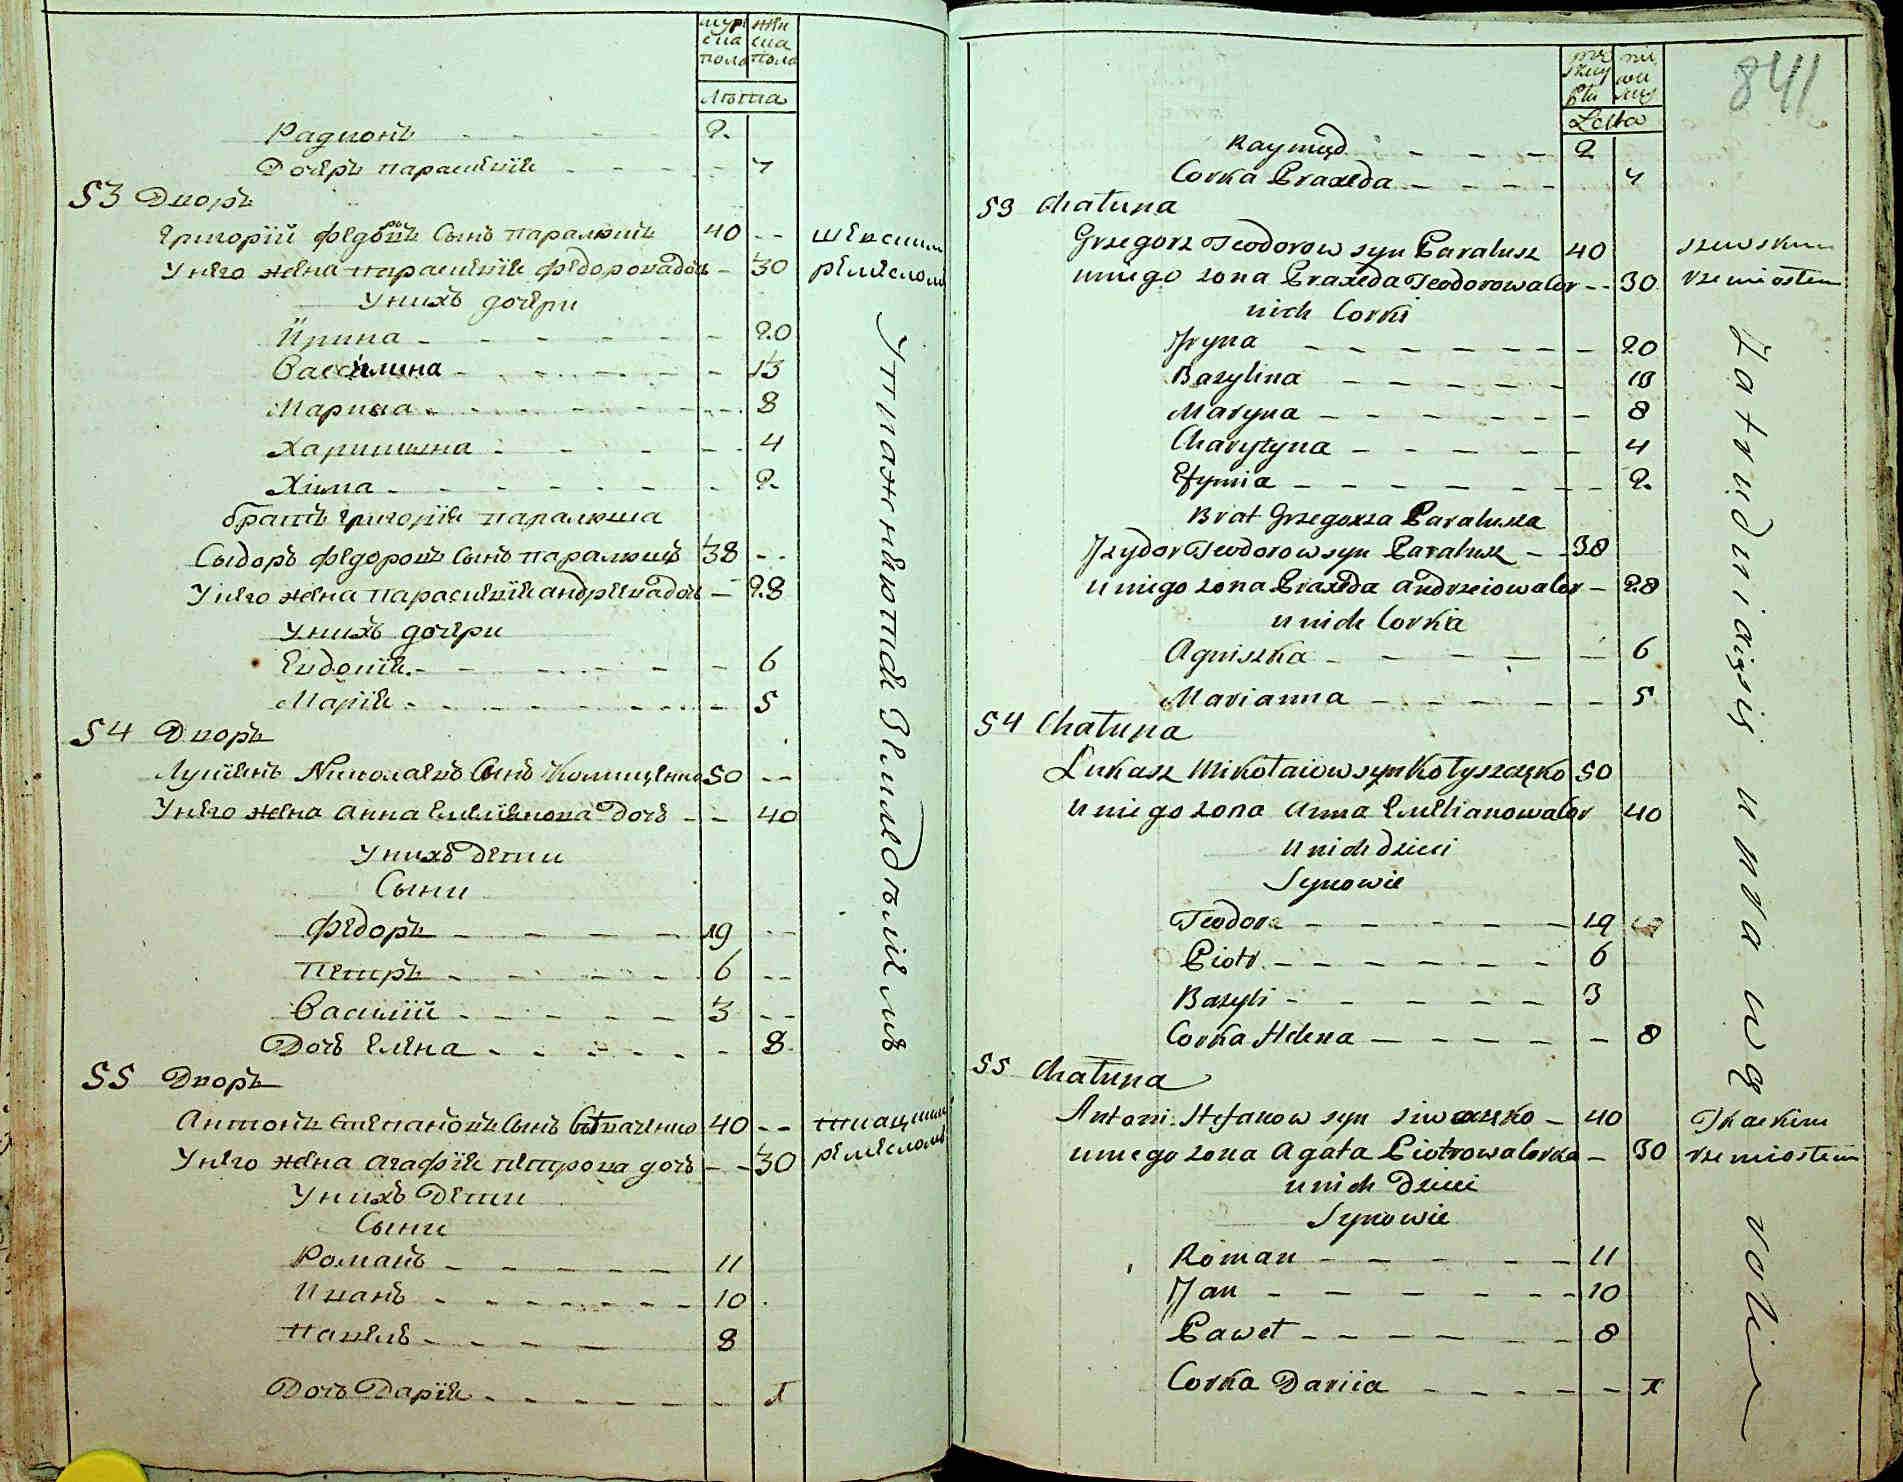 муж
ска
пола
жен
ска
пола
лѣта
Радионъ 2
Дочерь Параскевія 7
53 Дворъ
Григорій Федоровъ Сынъ Паралюшъ 40
У него жена Параскевія Федорова дочь 30
шевскимъ
ремесломъ
У нихъ дочери
Ирина 20
Василина 13
Марина 8
Харитина 4
Хима 2
братъ Григорія Паралюша
Сыдоръ Федоровъ Сынъ Паралюшъ 38
У него жена Параскевія Андреева дочь 28
У нихъ дочери
Евдокія 6
Марія 5
54 Дворъ
Лукіянъ Николаевъ Сынъ 50
У него жена Анна Емеліянова Дочь 40
У нихъ Дети
Сыни
Федоръ 19
Петръ 6
Василій 3
Дочь Елена 8
55 Дворъ
Антонъ Степановъ Сынъ 40
У него жена Агафія Петрова дочь 30
ткацкимъ
ремесломъ
У нихъ Дети
Сыни
Романъ 11
Иванъ 10
Павелъ 8
Дочь Дарія 1
Упражняются Земледѣліемъ
841
Lata
Raymund 2
Corka Praxeda 7
53 Chałupa
Grzegorz Teodorow syn Paralusz 40
u niego zona Praxeda Teodorowa cor 30
szewskim
rzemiosłem
nich Corki
Jryna 20
Bazylina 13
Maryna 8
Charytyna 4
Efymia 2
Brat Grzegorza Paralusza
Jzydor Teodorow syn Paralusz 38
u niego zona Praxeda Andrzeiowa cor 28
u nich Corka
Agniszka 6
Marianna 5
54 Chałupa
Łukasz Mikołaiow syn Kołyszczęko 50
u niego zona Anna Emelianowa cor 40
u nich dzieci
Synowie
Teodor 19
Piotr 6
Bazyli 3
Corka Helena 8
55 Chałupa
Antoni Stefanow syn 40
u niego zona Agata Piotrowa corka 30
Tkackim
rzemiosłem
u nich Dzieci
Synowie
Roman 11
Jan 10
Paweł 8
Corka Dariia 1
Zatrudniaią się uprawą roli